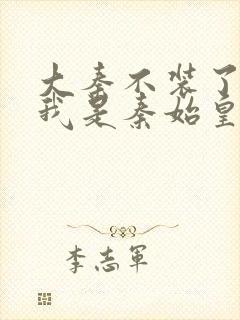 大秦不装了
我是秦始皇
李志军